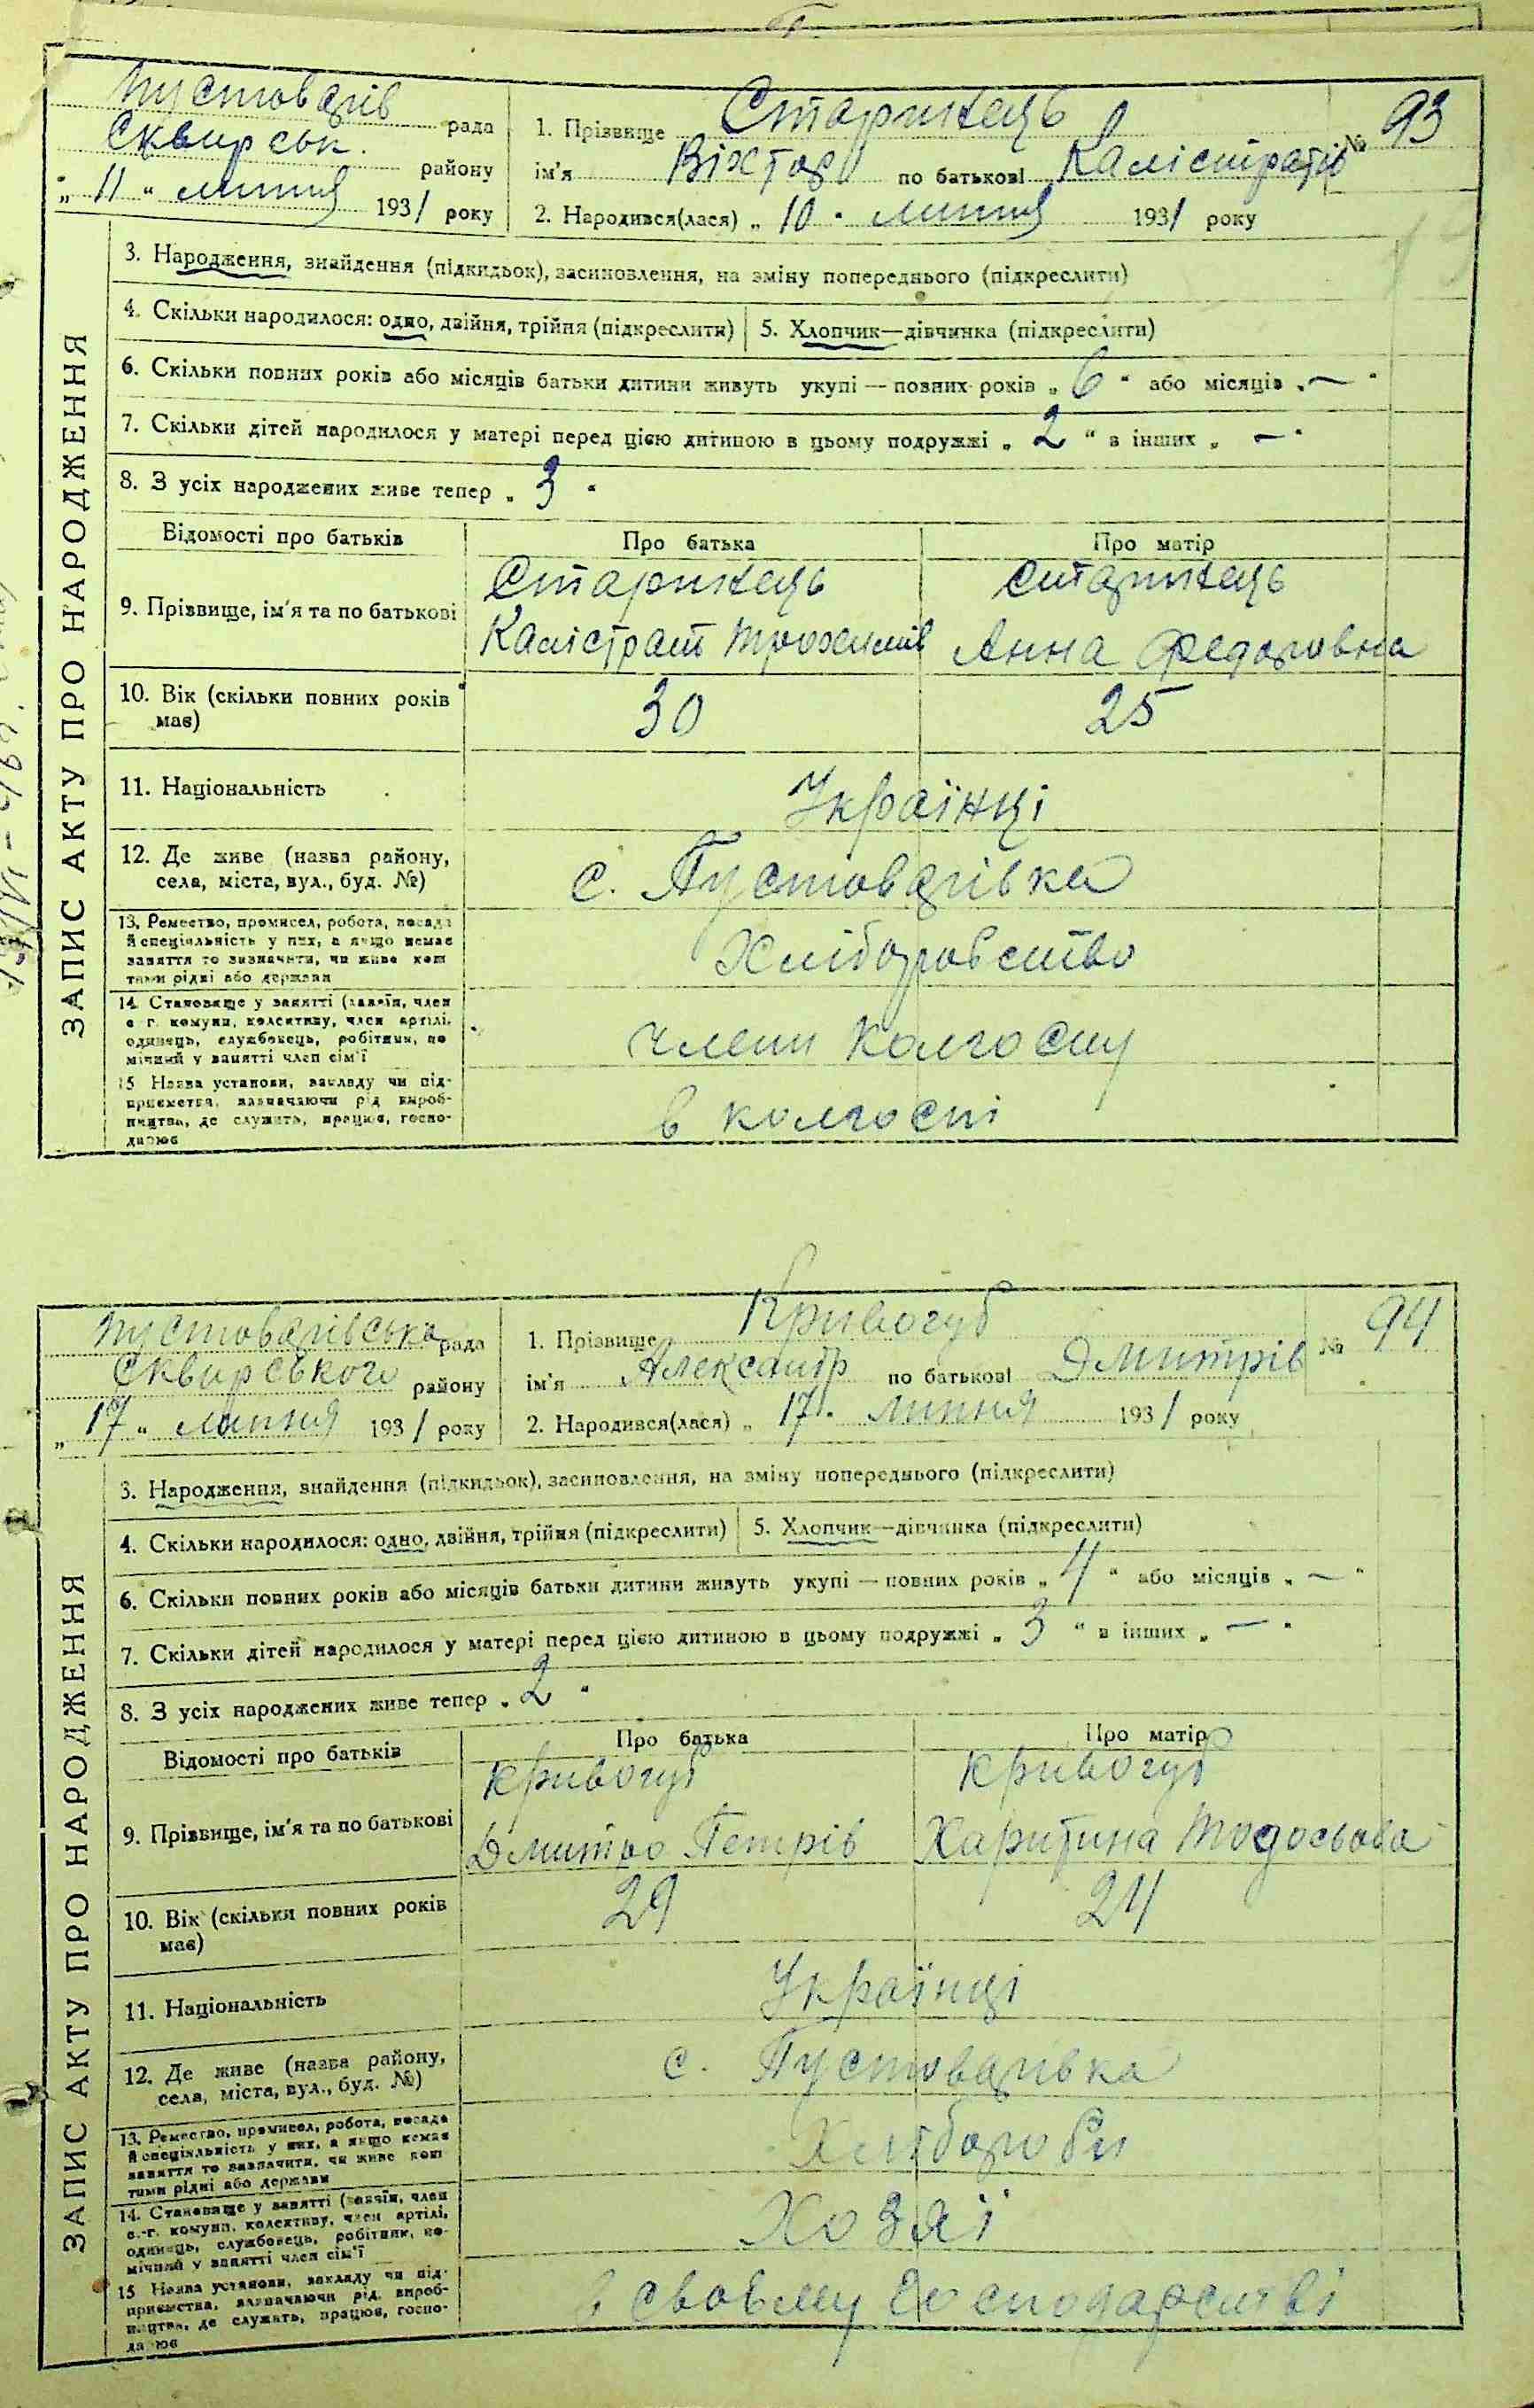 Пустоварів рада
Сквирськ. району
„ 11 “ липня 1931 року
1. Прізвище Старикець № 93
ім'я Віктор по батькові Калістратів
2. Народився(лася) „ 10 “ липня 1931 року
ЗАПИС АКТУ ПРО НАРОДЖЕННЯ
3. Народження, знайдення (підкидьок), засиновлення, на зміну попереднього (підкреслити)
4. Скільки народилося: одно, двійня, трійня (підкреслити) 5. Хлопчик—дівчинка (підкреслити)
6. Скільки повних років або місяців батьки дитини живуть укупі — повних років „ 6 “ або місяців „ — “
7. Скільки дітей народилося у матері перед цією дитиною в цьому подружжі „ 2 “ в інших „ — “
8. З усіх народжених живе тепер „ 3 “
Відомості про батьків Про батька Про матір
9. Прізвище, ім'я та по батькові
Старикець Старикець
Калістрат Анна Федоровна
10. Вік (скільки повних років має) 30 25
11. Національність Українці
12. Де живе (назва району, села, міста, вул., буд. №) с. Пустоварівка
13. Ремество, промисел, робота, посада
й спеціяльність у них, а якщо немає
заняття то визначити, чи живе кош
тами рідні або держави
Хліборобство
14. Становище у занятті (хазяїн, член
с.-г. комуни, колективу, член артілі,
одинець, службовець, робітник, по
мічний у занятті член сім'ї
члени колгоспу
15 Назва установи, закладу чи під-
приємства, зазначаючи рід вироб-
ництва, де служить, працює, госпо-
дарює
в колгоспі
Пустоварівська рада
Сквирського району
„ 17 “ липня 1931 року
1. Прізвище Кривогуб № 94
ім'я Александр по батькові Дмитрів
2. Народився(лася) „ 17 “ липня 1931 року
ЗАПИС АКТУ ПРО НАРОДЖЕННЯ
3. Народження, знайдення (підкидьок), засиновлення, на зміну попереднього (підкреслити)
4. Скільки народилося: одно, двійня, трійня (підкреслити) 5. Хлопчик—дівчинка (підкреслити)
6. Скільки повних років або місяців батьки дитини живуть укупі — повних років „ 4 “ або місяців „ — “
7. Скільки дітей народилося у матері перед цією дитиною в цьому подружжі „ 3 “ в інших „ — “
8. З усіх народжених живе тепер „ 2 “
Відомості про батьків Про батька Про матір
9. Прізвище, ім'я та по батькові
Кривогуб Кривогуб
Дмитро Петрів Харитина Тодосьова
10. Вік (скільки повних років має) 29 24
11. Національність Українці
12. Де живе (назва району, села, міста, вул., буд. №) с. Пустоварівка
13. Ремество, промисел, робота, посада
й спеціяльність у них, а якщо немає
заняття то визначити, чи живе кош
тами рідні або держави
Хлібороби
14. Становище у занятті (хазяїн, член
с.-г. комуни, колективу, член артілі,
одинець, службовець, робітник, по-
мічний у занятті член сім'ї
Хозяї
15 Назва установи, закладу чи під-
приємства, зазначаючи рід вироб-
ництва, де служить, працює, госпо-
дарює
в своєму господарстві